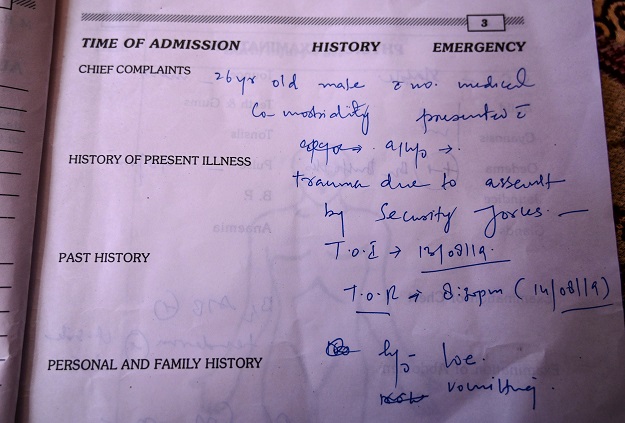 3
TIME OF ADMISSION HISTORY EMERGENCY
CHIEF COMPLAINTS 26 yr old male c̄ no. medical
Co-morbidity presented c̄
HISTORY OF PRESENT ILLNESS a/h/o →
trauma due to assault
by Security forces. —
PAST HISTORY T.O.I → 13/08/19.
T.O.R → 8:30pm (14/08/19)
PERSONAL AND FAMILY HISTORY h/o LOC.
vomiting.